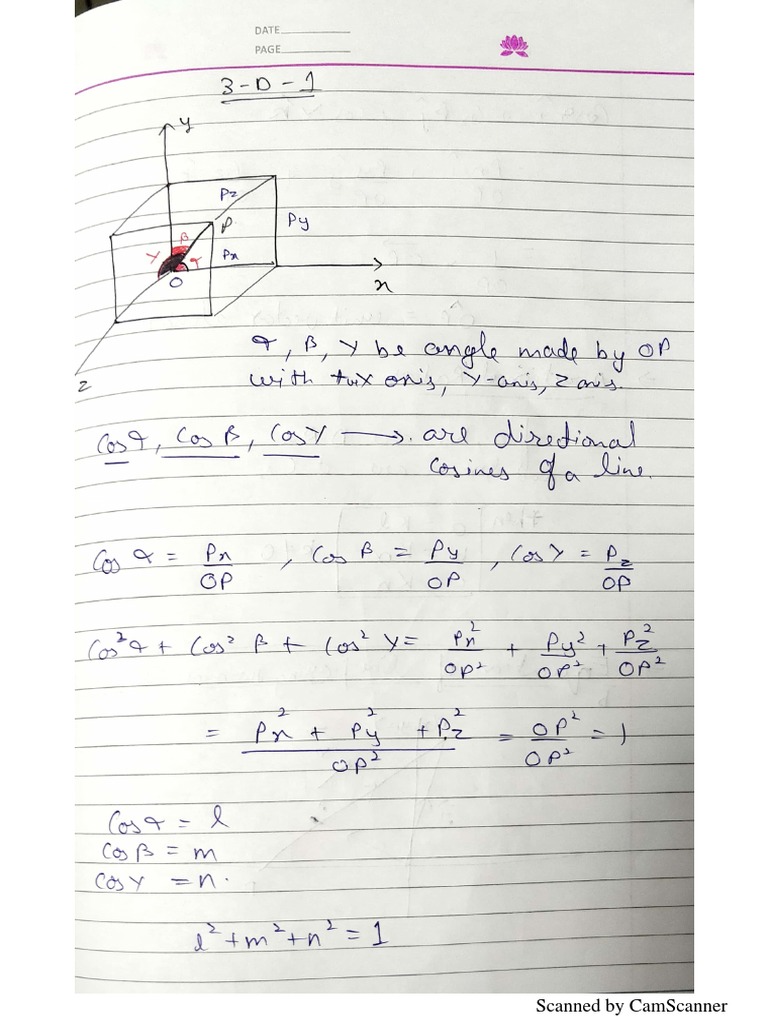 DATE
PAGE
3-D-1
y
Pz
P
Py
β
γ
α
Px
O
x
z
α, β, γ be angle made by OP
with x axis, Y-axis, Z axis.
Cosα, Cosβ, Cosγ → are directional
Cosines of a line.
Cos α = Px/OP, Cos β = Py/OP, Cosγ = Pz/OP
Cos²α + Cos² β + Cos² γ = Px²/OP² + Py²/OP² + Pz²/OP²
= Px² + Py² + Pz² / OP² = OP²/OP² = 1
Cosα = l
Cosβ = m
Cosγ = n.
l²+m²+n² = 1
Scanned by CamScanner